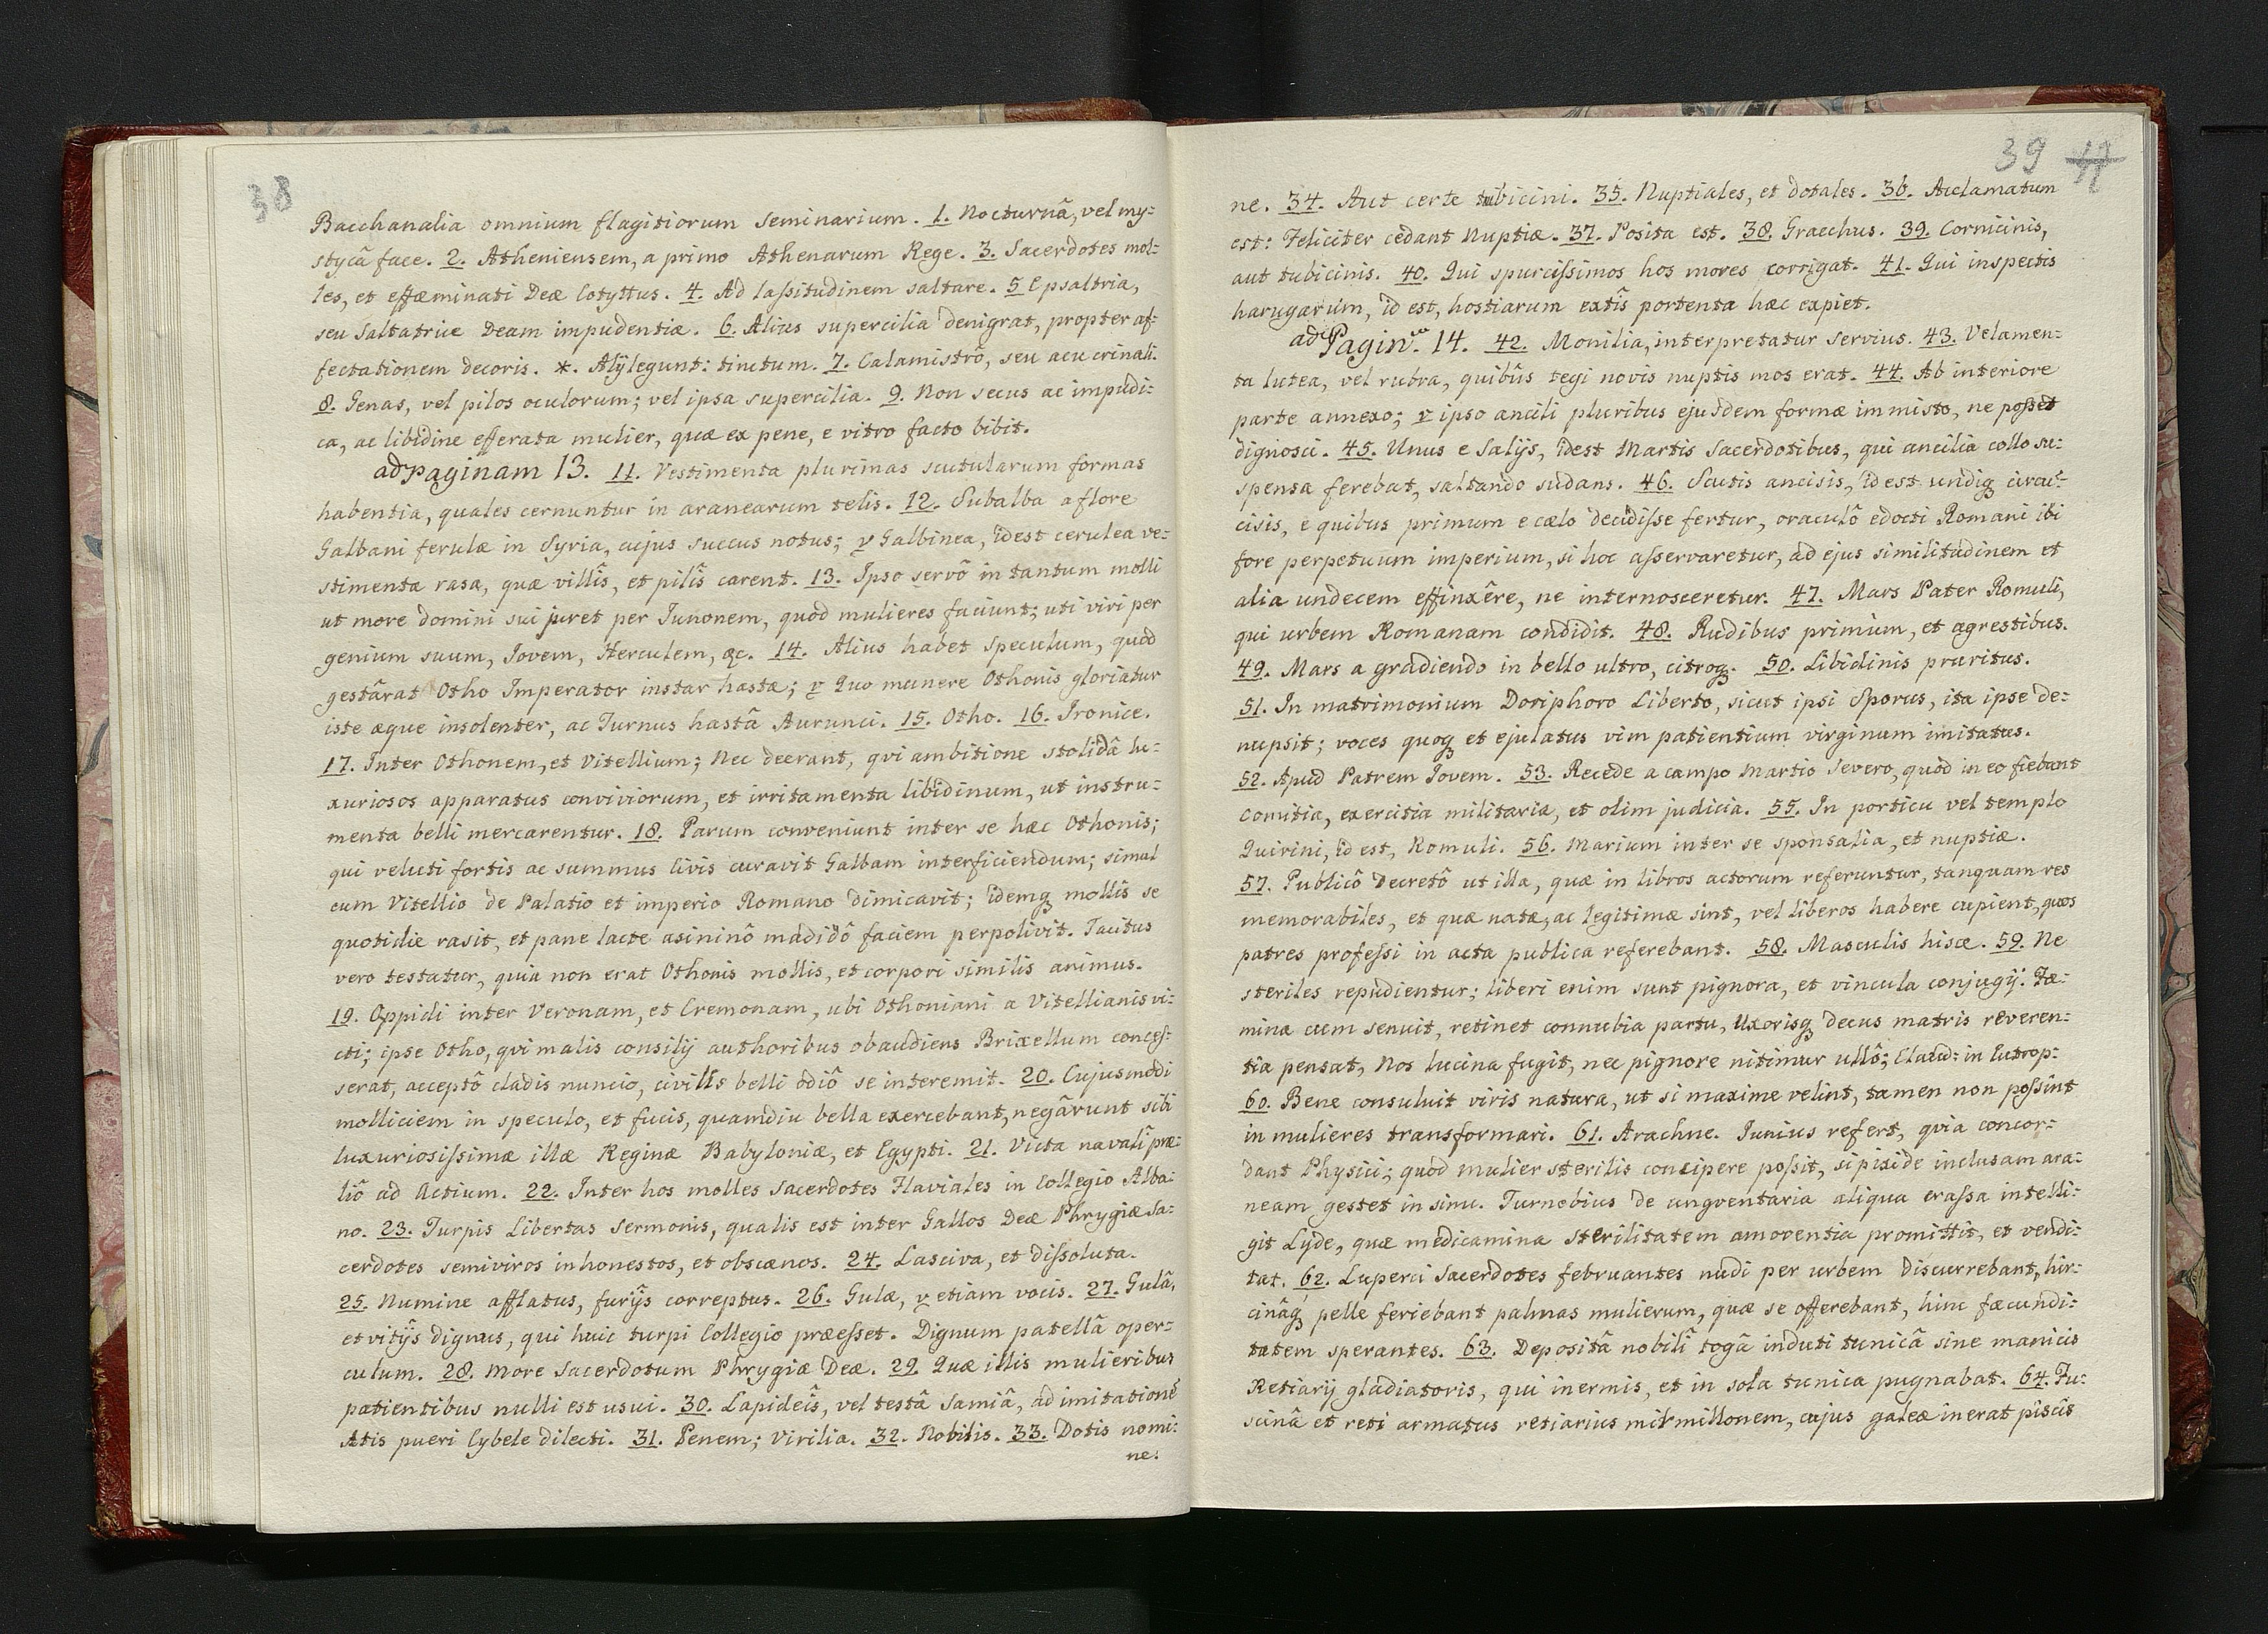 38
Bacchanalia omnium flagitiorum seminarium. 1. Nocturnâ, vel my:
stycâ face. 2. Atheniensem, a primo Athenarum Rege. 3. Sacerdotes mol:
les, et effæminati Deæ Cotyttus. 4. Ad laſsitudinem saltare. 5 E psaltria,
seu Saltatrice Deam impudentiæ. 6. Alius supercilia denigrat, propter af-
fectationem decoris. *. Alÿ legunt: tinctum. 7. Calamistrô, seu acu crinali.
8. Genas, vel pilos oculorum; vel ipsa supercilia. 9. Non secus ac impudi:
ca, ac libidine efferata mulier, quæ ex pene, e vitro facto bibit.
ad paginam 13. 11. Vestimenta plurimas scutularum formas
habentia, quales cernuntur in aranearum telis. 12. Subalba a flore
Galbani ferulæ in Syria, cujus succus notus; v Galbinea, idest cerulea ve:
stimenta rasa, quæ villîs, et pilîs carent. 13. Ipso servô in tantum molli
ut more domini sui juret per Junonem, quod mulieres faciunt; uti viri per
genium suum, Jovem, Herculem, &c. 14. Alius habet speculum, quod
gestârat Otho Imperator instar hastæ; v Quo munere Othonis gloriatur
iste æque insolenter, ac Turnus hastâ Aurunci. 15. Otho. 16. Ironice.
17. Inter Othonem, et Vitellium; Nec deerant, qui ambitione stolidâ lu:
xuriosos apparatus conviviorum, et irritamenta libidinum, ut instru:
menta belli mercarentur. 18. Parum conveniunt inter se hæc Othonis;
qui veluti fortis ac summus Civis curavit Galbam interficiendum; simul
cum Vitellio de Palatio et imperio Romano dimicavit; idemq mollis se
quotidie rasit, et pane lacte asininô madidô faciem perpolivit. Tacitus
vero testatur, quia non erat Othonis mollis, et corpori similis animus.
19. Oppidi inter Veronam, et Cremonam, ubi Othoniani a Vitellianis vi:
cti; ipse Otho, qui malis consilÿ authoribus obaudiens Brixellum conceſ:
serat, acceptô cladis nuncio, civilis belli odiô se interemit. 20. Cujusmodi
molliciem in speculo, et fucis, quamdiu bella exercebant, negârunt sibi
luxuriosiſsimæ illæ Reginæ Babyloniæ, et Egypti. 21. Victa navali præ:
liô ad Actium. 22. Inter hos molles Sacerdotes Flaviales in Collegio Alba:
no. 23. Turpis Libertas Sermonis, qualis est inter Gallos Deæ Phrygiæ Sa:
cerdotes semiviros inhonestos, et obscænos. 24. Lasciva, et diſsoluta.
25. Numine afflatus, furÿs correptus. 26. Gulæ, v etiam vocis. 27. Gulâ,
et vitÿs dignus, qui huic turpi Collegio præeſset. Dignum patellâ oper:
culum. 28. More Sacerdotum Phrygiæ Deæ. 29. Quæ illis mulieribus
patientibus nulli est usui. 30. Lapideîs, vel testâ Samiâ, ad imitationē
Atis pueri Cybele dilecti. 31. Penem; Virilia. 32. Nobilis. 33. Dotis nomi:
ne.
39
ne. 34. Aut certe tubicini. 35. Nuptiales, et dotales. 36. Acclamatum
est: Feliciter cedant Nuptiæ. 37. Posita est. 38. Gracchus. 39. Cornicinis,
aut tubicinis. 40. Qui spurciſsimos hos mores corrigat. 41. Qui inspectis
harugarum, id est, hostiarum extîs portenta hæc expiet.
ad Pagin. 14. 42. Monilia, interpretatur Servius. 43. Velamen:
ta lutea, vel rubra, quibûs tegi novis nuptis mos erat. 44. Ab interiore
parte annexo; v ipso ancili pluribus ejusdem formæ immisto, ne poſset
dignosci. 45. Unus e Salÿs, idest Martis Sacerdotibus, qui ancilia collo su:
spensa ferebat, saltando sudans. 46. Scutis ancisis, id est undiq circū:
cisis, e quibus primum e cælo decidiſse fertur, oraculô edocti Romani ibi
fore perpetuum imperium, si hoc aſservaretur, ad ejus similitudinem et
alia undecem effinxêre, ne internosceretur. 47. Mars Pater Romuli,
qui urbem Romanam condidit. 48. Rudibus primum, et agrestibus.
49. Mars a gradiendo in bello ultro, citroq. 50. Libidinis pruritus.
51. In matrimonium Doriphoro Liberto, sicut ipsi Sporus, ita ipse de:
nupsit; voces quoq et ejulatus vim patientium virginum imitatus.
52. Apud Patrem Jovem. 53. Recede a campo Martio Severo, quod in eo fiebant
Comitia, exercitia militaria, et olim judicia. 55. In porticu vel templo
Quirini, id est, Romuli. 56. Marium inter se sponsalia, et nuptiæ.
57. Publicô Decretô ut illa, quæ in libros actorum referuntur, tanquam res
memorabiles, et quæ natæ, ac legitimæ sint, vel liberos habere cupient, quos
patres profeſsi in acta publica referebant. 58. Masculis hisce. 59. Ne
steriles repudientur; liberi enim sunt pignora, et vincula conjugÿ. Fæ:
mina cum senuit, retinet connubia partu, Uxorisq decus matris reveren:
tia pensat, Nos lucina fugit, nec pignore nitimur ullô; Claud: in Eutrop:
60. Bene consuluit viris natura, ut si maxime velint, tamen non poſsint
in mulieres transformari. 61. Arachne. Junius refert, quia concor:
dant Physici; quod mulier sterilis concipere poſsit, si pixide inclusam ara:
neam gestet in sinu. Turnebius de ungventaria aliqua craſsa intelli:
git Lyde, quæ medicamina sterilitatem amoventia promittit, et vendi:
tat. 62. Luperci Sacerdotes februantes nudi per urbem discurrebant, hir:
cinâq pelle feriebant palmas mulierum, quæ se offerebant, hinc fæcundi:
tatem sperantes. 63. Depositâ nobilî togâ induti tunicâ sine manicis
Retiarÿ gladiatoris, qui inermis, et in sola tunica pugnabat. 64. Fu:
scinâ et reti armatus retiarius mirmillonem, cujus galeæ inerat piscis